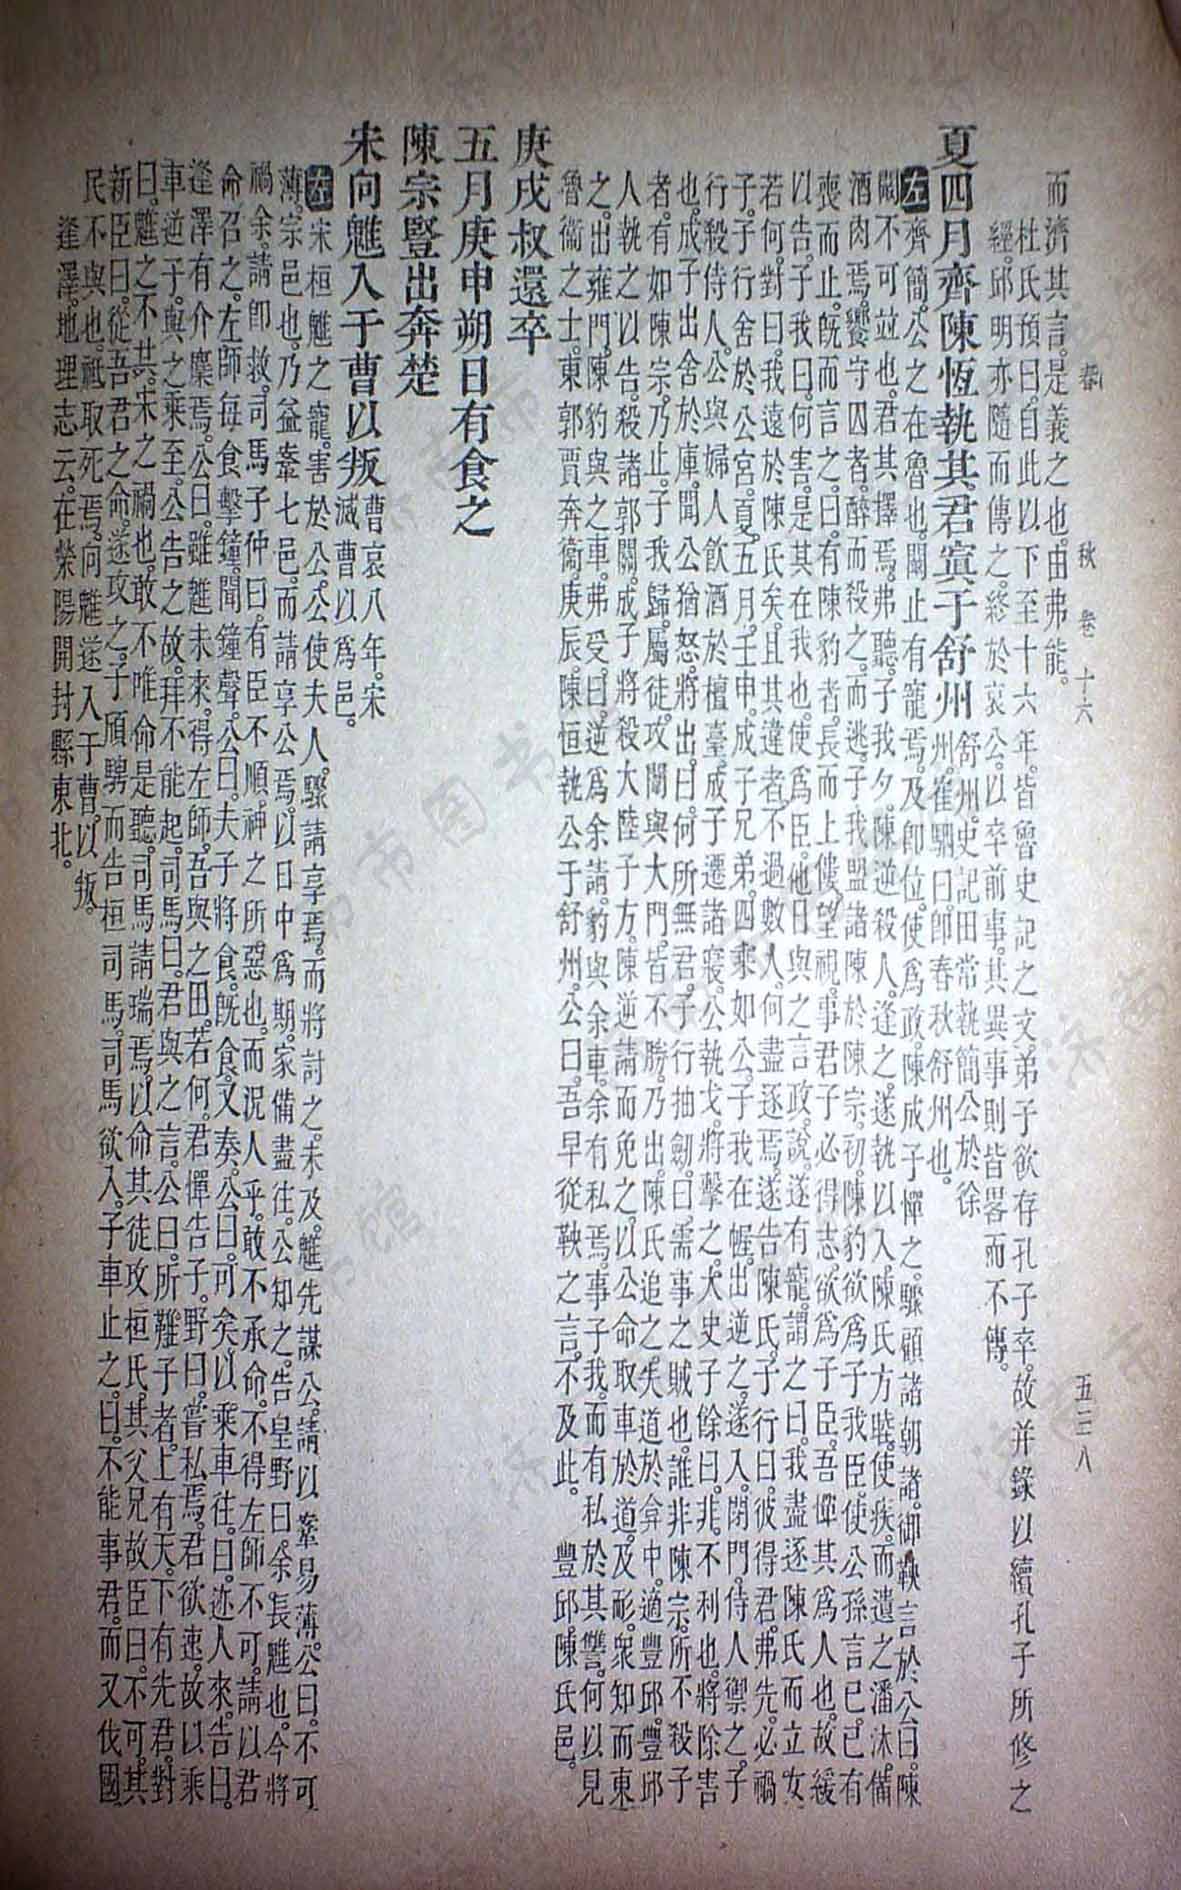 春 秋 卷 十六 五三八
而濟其言。是義之也。由弗能。
杜氏預曰。自此以下至十六年。皆魯史記之文。弟子欲存孔子卒。故并錄以續孔子所修之
經。邱明亦隨而傳之。終於哀公。以卒前事。其異事則皆畧而不傳。
夏四月齊陳恆執其君寘于舒州 舒州。史記田常執簡公於徐
州。崔駰曰。卽春秋舒州也。
左 齊簡公之在魯也。闞止有寵焉。及卽位。使爲政。陳成子憚之。驟顧諸朝。諸御鞅言於公曰。陳
闞不可並也。君其擇焉。弗聽。子我夕。陳逆殺人。逢之。遂執以入。陳氏方睦。使疾。而遺之潘沐。備
酒肉焉。饗守囚者。醉而殺之。而逃。子我盟諸陳於陳宗。初。陳豹欲爲子我臣。使公孫言己。已有
喪而止。旣而言之。曰。有陳豹者。長而上僂。望視。事君子必得志。欲爲子臣。吾憚其爲人也。故緩
以告。子我曰。何害。是其在我也。使爲臣。他日與之言政。說。遂有寵。謂之曰。我盡逐陳氏而立女
若何。對曰。我遠於陳氏矣。且其違者。不過數人。何盡逐焉。遂告陳氏。子行曰。彼得君。弗先。必禍
子。子行舍於公宮。夏。五月。壬申。成子兄弟。四乘如公。子我在幄。出逆之。遂入。閉門。侍人禦之。子
行殺侍人。公與婦人飲酒於檀臺。成子遷諸寢。公執戈。將擊之。大史子餘曰。非不利也。將除害
也。成子出舍於庫。聞公猶怒。將出。曰。何所無君。子行抽劒。曰。需事之賊也。誰非陳宗。所不殺子
者。有如陳宗。乃止。子我歸。屬徒。攻闈與大門。皆不勝。乃出。陳氏追之。失道於弇中。適豐邱。豐邱
人執之以告。殺諸郭關。成子將殺大陸子方。陳逆請而免之。以公命取車於道。及耏。衆知而東
之。出雍門。陳豹與之車。弗受。曰。逆爲余請。豹與余車。余有私焉。事子我。而有私於其讐。何以見
魯衞之士。東郭賈奔衞。庚辰。陳恒執公于舒州。公曰。吾早從鞅之言。不及此。 豐邱。陳氏邑。
庚戌叔還卒
五月庚申朔日有食之
陳宗豎出奔楚
宋向魋入于曹以叛 曹哀八年。宋
滅曹以爲邑。
左 宋桓魋之寵。害於公。公使夫人。驟請享焉。而將討之。未及。魋先謀公。請以鞌易薄。公曰。不可
薄。宗邑也。乃益鞌七邑。而請享公焉。以日中爲期。家備盡往。公知之。告皇野曰。余長魋也。今將
禍余。請卽救。司馬子仲曰。有臣不順。神之所惡也。而況人乎。敢不承命。不得左師不可。請以君
命召之。左師每食擊鐘。聞鐘聲。公曰。夫子將食。旣食。又奏。公曰。可矣。以乘車往。曰。迹人來。告曰。
逢澤有介麇焉。公曰。雖魋未來。得左師。吾與之田。若何。君憚告子。野曰。嘗私焉。君欲速。故以乘
車逆子。與之乘。至。公告之故。拜不能起。司馬曰。君與之言。公曰。所難子者。上有天。下有先君。對
曰。魋之不共。宋之禍也。敢不唯命是聽。司馬請瑞焉。以命其徒攻桓氏。其父兄故臣曰。不可。其
新臣曰。從吾君之命。遂攻之。子頎騁而告桓司馬。司馬欲入。子車止之。曰。不能事君。而又伐國
民不與也。祗取死焉。向魋遂入于曹。以叛。
逢澤。地理志云。在滎陽開封縣東北。